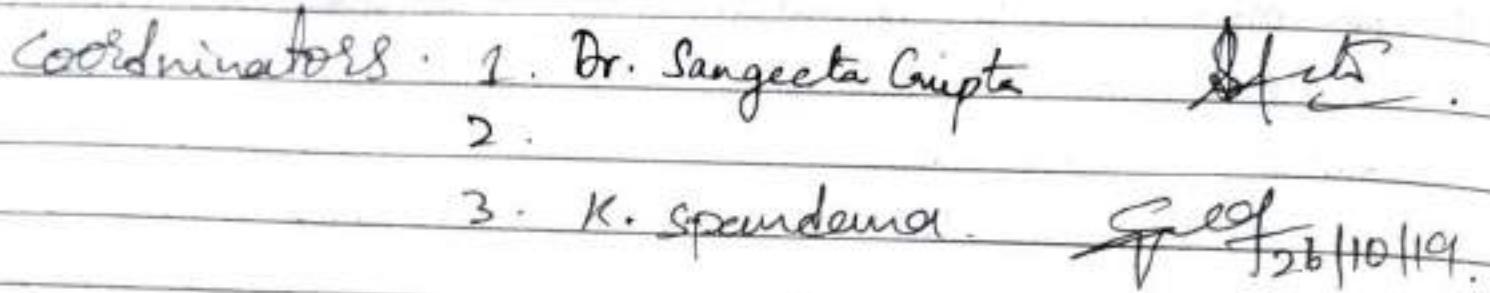 Coordninators. 1. Dr. Sangeeta Gupta
2.
3. K. Spandana. 26/10/19.